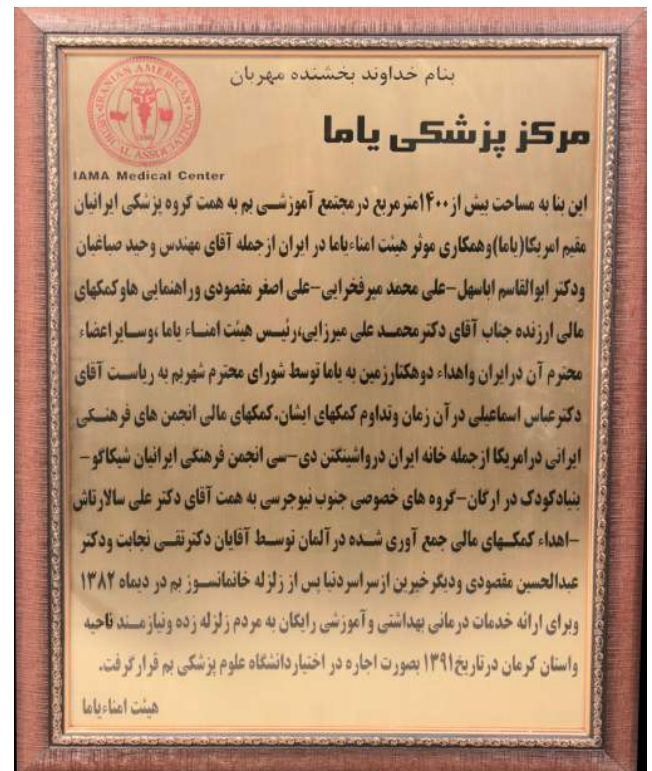 بنام خداوند بخشنده مهربان
IRANIAN AMERICAN MEDICAL ASSOCIATION
مرکز پزشکی یاما
IAMA Medical Center
این بنا به مساحت بیش از ۱۴۰۰مترمربع درمجتمع آموزشی بم به همت گروه پزشکی ایرانیان
مقیم امریکا(یاما)وهمکاری موثر هیئت امناءیاما در ایران ازجمله آقای مهندس وحید صباغیان
ودکتر ابوالقاسم اباسهل-علی محمد میرفخرایی-علی اصغر مقصودی وراهنمایی هاوکمکهای
مالی ارزنده جناب آقای دکترمحمد علی میرزایی،رئیس هیئت امناء یاما ،وسایراعضاء
محترم آن درایران واهداء دوهکتارزمین به یاما توسط شورای محترم شهربم به ریاست آقای
دکترعباس اسماعیلی درآن زمان وتداوم کمکهای ایشان.کمکهای مالی انجمن های فرهنگی
ایرانی درامریکا ازجمله خانه ایران درواشینگتن دی-سی انجمن فرهنگی ایرانیان شیکاگو-
بنیادکودک در ارگان-گروه های خصوصی جنوب نیوجرسی به همت آقای دکتر علی سالارتاش
-اهداء کمکهای مالی جمع آوری شده در آلمان توسط آقایان دکترتقی نجابت ودکتر
عبدالحسین مقصودی ودیگرخیرین ازسراسردنیا پس از زلزله خانمانسوز بم در دیماه ۱۳۸۲
وبرای ارائه خدمات درمانی بهداشتی وآموزشی رایگان به مردم زلزله زده ونیازمند ناحیه
واستان کرمان درتاریخ۱۳۹۱ بصورت اجاره در اختیاردانشگاه علوم پزشکی بم قرارگرفت.
هیئت امناءیاما